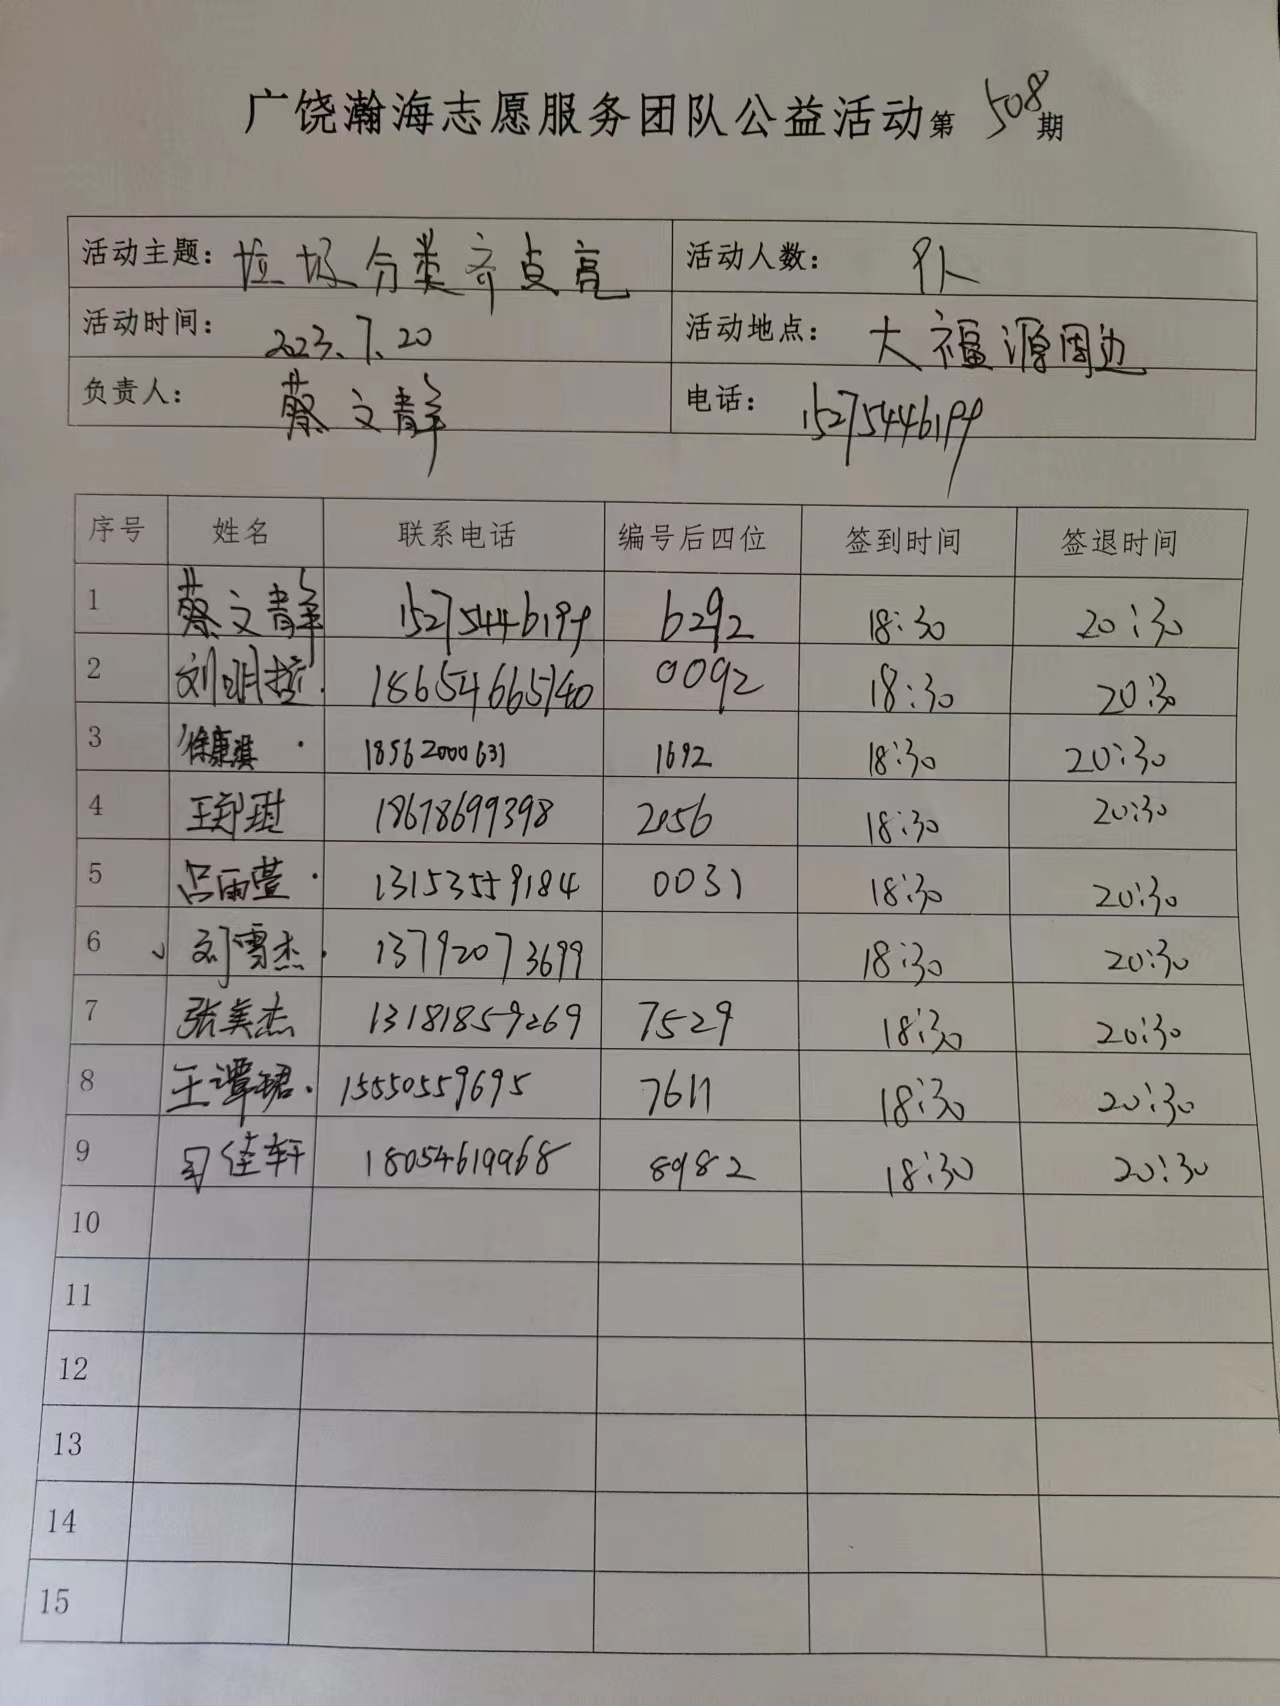 广饶瀚海志愿服务团队公益活动第508期
活动主题: 垃圾分类齐点亮 活动人数: 9人
活动时间: 2023.7.20 活动地点: 大福源周边
负责人: 蔡文静 电话: 15275446199
序号 姓名 联系电话 编号后四位 签到时间 签退时间
1 蔡文静 15275446199 6292 18:30 20:30
2 刘明哲 18654665740 0092 18:30 20:30
3 徐康淇 18562000631 1692 18:30 20:30
4 王郑琪 18678699398 2056 18:30 20:30
5 吕雨萱 13153559184 0031 18:30 20:30
6 刘雪杰 13792073699 18:30 20:30
7 张美杰 13181859269 7529 18:30 20:30
8 王谭珺 15550559695 7611 18:30 20:30
9 佳轩 18054619968 8982 18:30 20:30
10
11
12
13
14
15